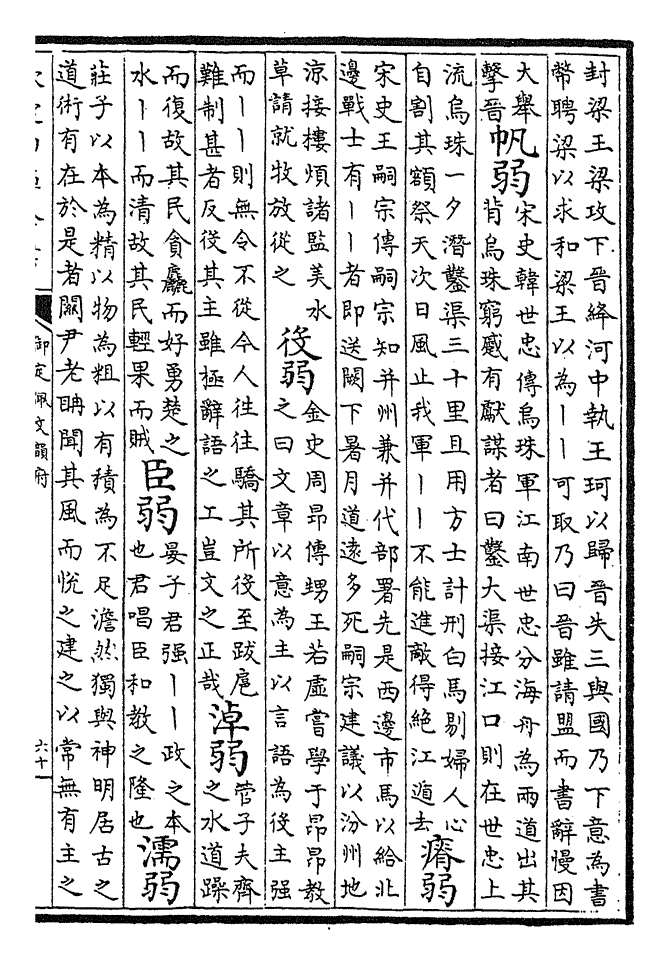 封梁王梁攻下晉絳河中執王珂以歸晉失三與國乃下意為書
幣聘梁以求和梁王以為丨丨可取乃曰晉雖請盟而書辭慢因
大舉
擊晉
帆弱
宋史韓世忠傳烏珠軍江南世忠分海舟為兩道出其
背烏珠窮蹙有獻謀者曰鑿大渠接江口則在世忠上
流烏珠一夕潛鑿渠三十里且用方士計刑白馬剔婦人心
自割其額祭天次日風止我軍丨丨不能進敵得絕江遁去
瘠弱
宋史王嗣宗傳嗣宗知并州兼并代部署先是西邊市馬以給北
邊戰士有丨丨者即送闕下暑月道遠多死嗣宗建議以汾州地
涼接樓煩諸監美水
草請就牧放從之
役弱
金史周昂傳甥王若虛嘗學于昂昂教
之曰文章以意為主以言語為役主强
而丨丨則無令不從今人往往驕其所役至跋扈
難制甚者反役其主雖極辭語之工豈文之正哉
淖弱
管子夫齊
之水道躁
而復故其民貪麤而好勇楚之
水丨丨而清故其民輕果而賊
臣弱
晏子君强丨丨政之本
也君唱臣和教之隆也
濡弱
莊子以本為精以物為粗以有積為不足澹然獨與神明居古之
道術有在於是者關尹老聃聞其風而悅之建之以常無有主之
御定佩文韻府
六十